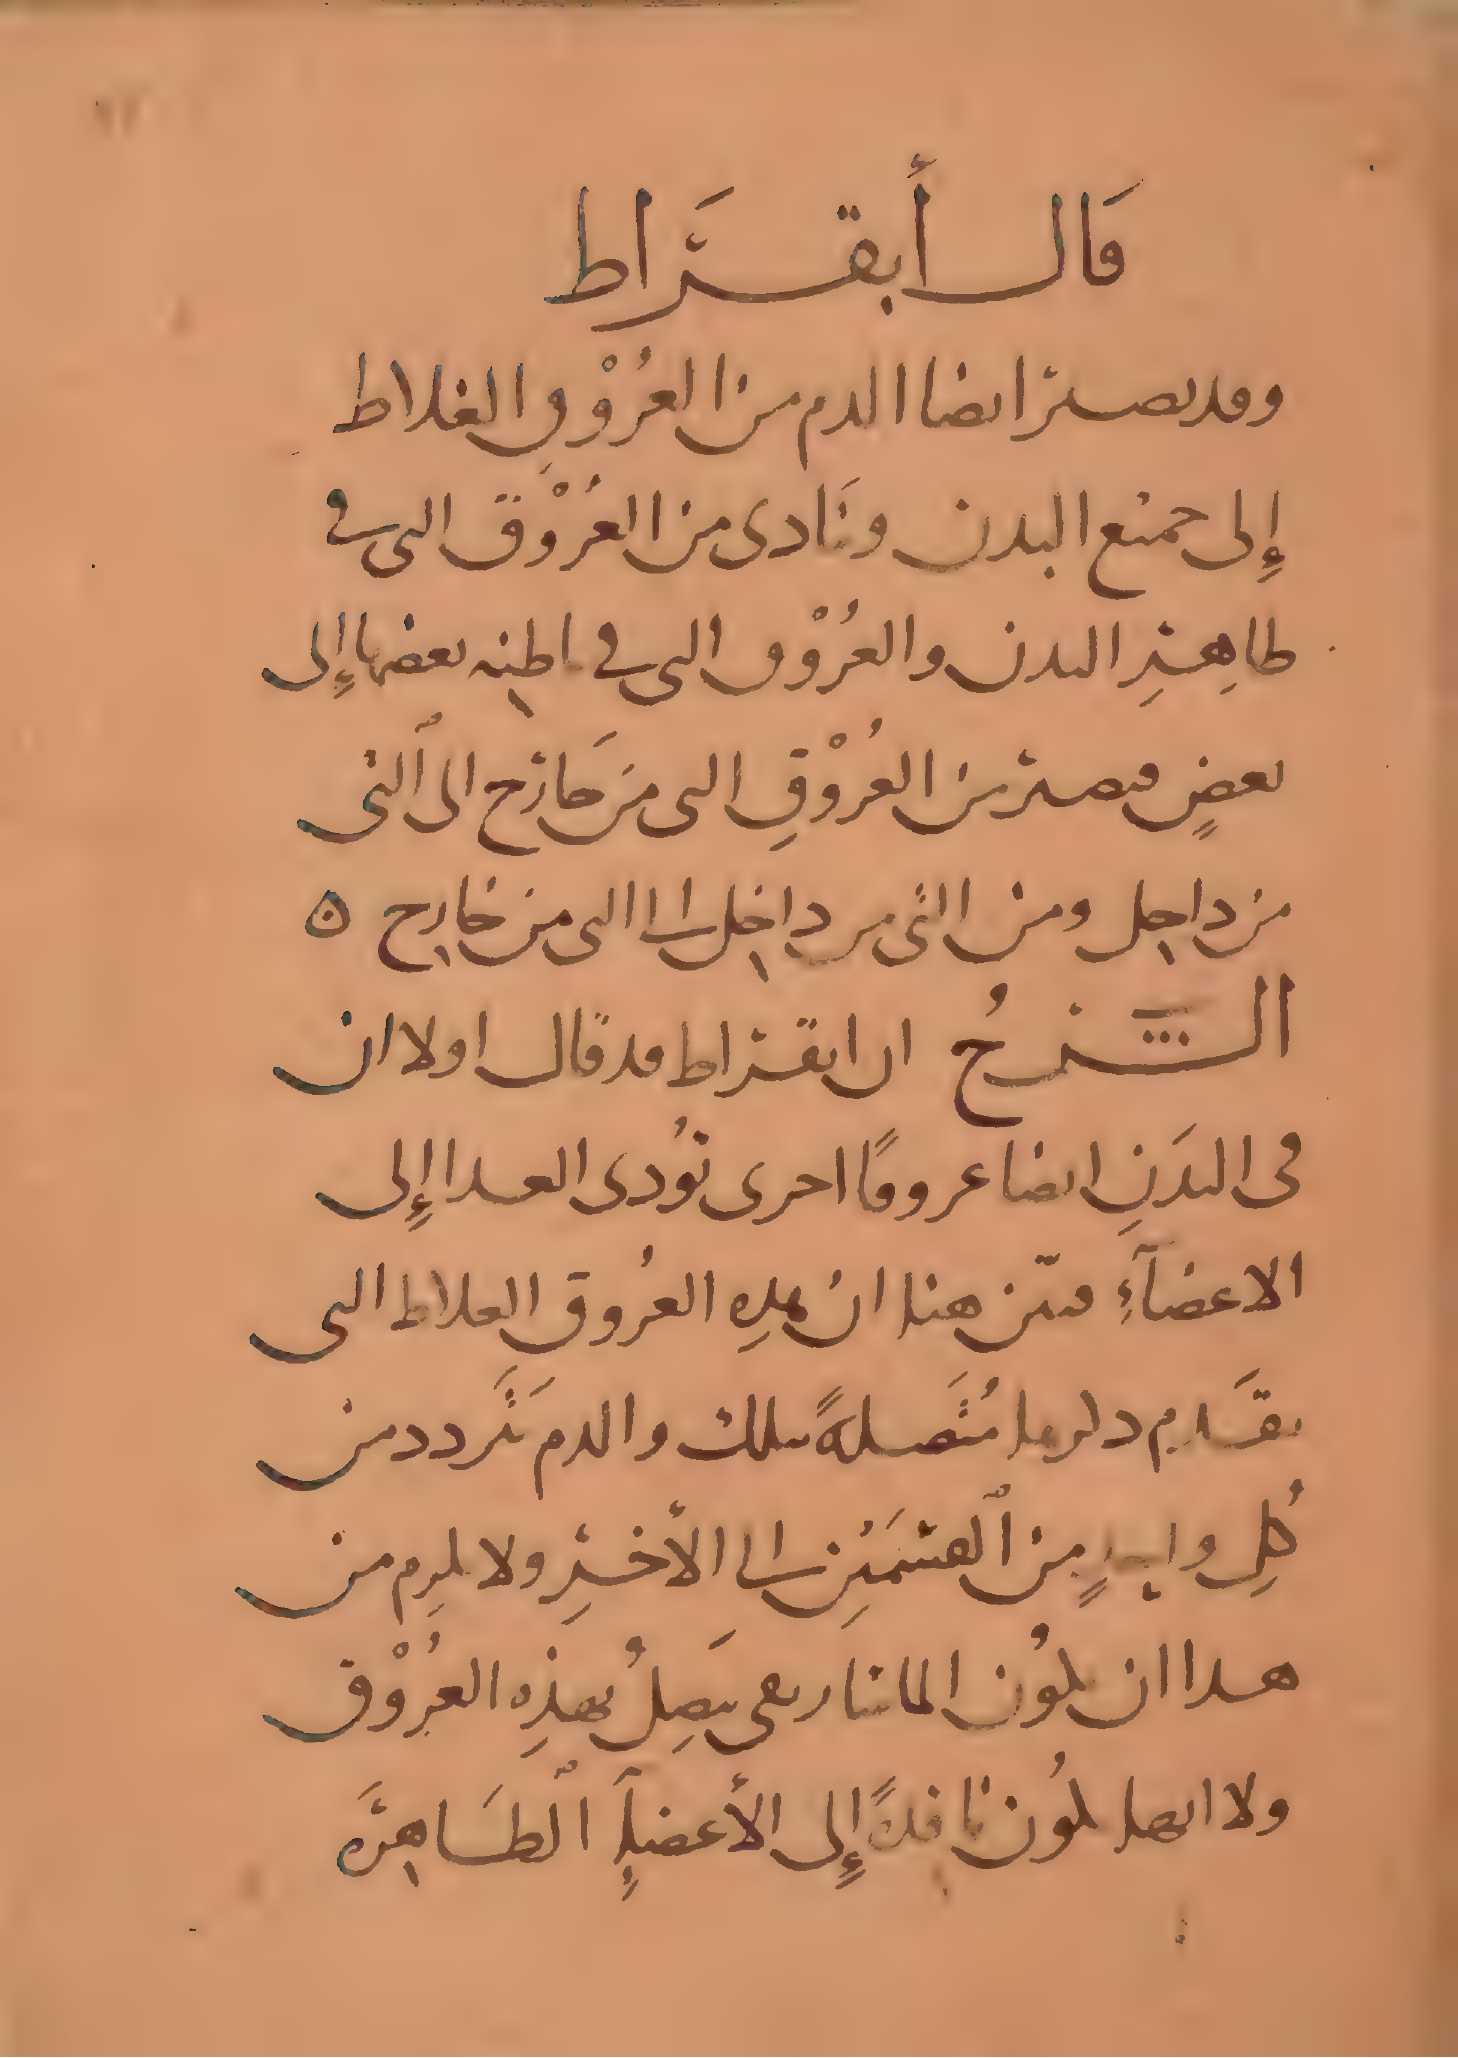 قال أبقراط
وقد يصير ايضا الدم من العُرُوْقِ الغلاط
إلى جميع البدن وتَتادى من العُرُوْق التى فى
ظاهِرِ البدن والعُرُوْق التى فى باطنه بعضها إلى
بعضٍ فيصير من العُرُوْقِ التى من خَارج الى ٱلتى
من داخل ومن التى من داخل الى التى من خارج ه
الشرحُ ان ابقراط قد قال اولا ان
فى البدَنِ ايضا عروقًا اخرى تُؤدى الغدا إلى
الاعضآءِ فبيّن هنا ان هذِه العرُوق الغلاط التى
تقَدم ذكرها مُتَّصلةً بتلك والدم يَتَردد من
كُلِ واحدٍ من ٱلقسْمَيْنِ الى الأخرِ ولا يلزم من
هدا ان يكُون الماساريقى يتصِلُ بهذِه العُرُوْق
ولا انها يكُون نافذةً إلى الأعضآءِ ٱلظَاهِرَة